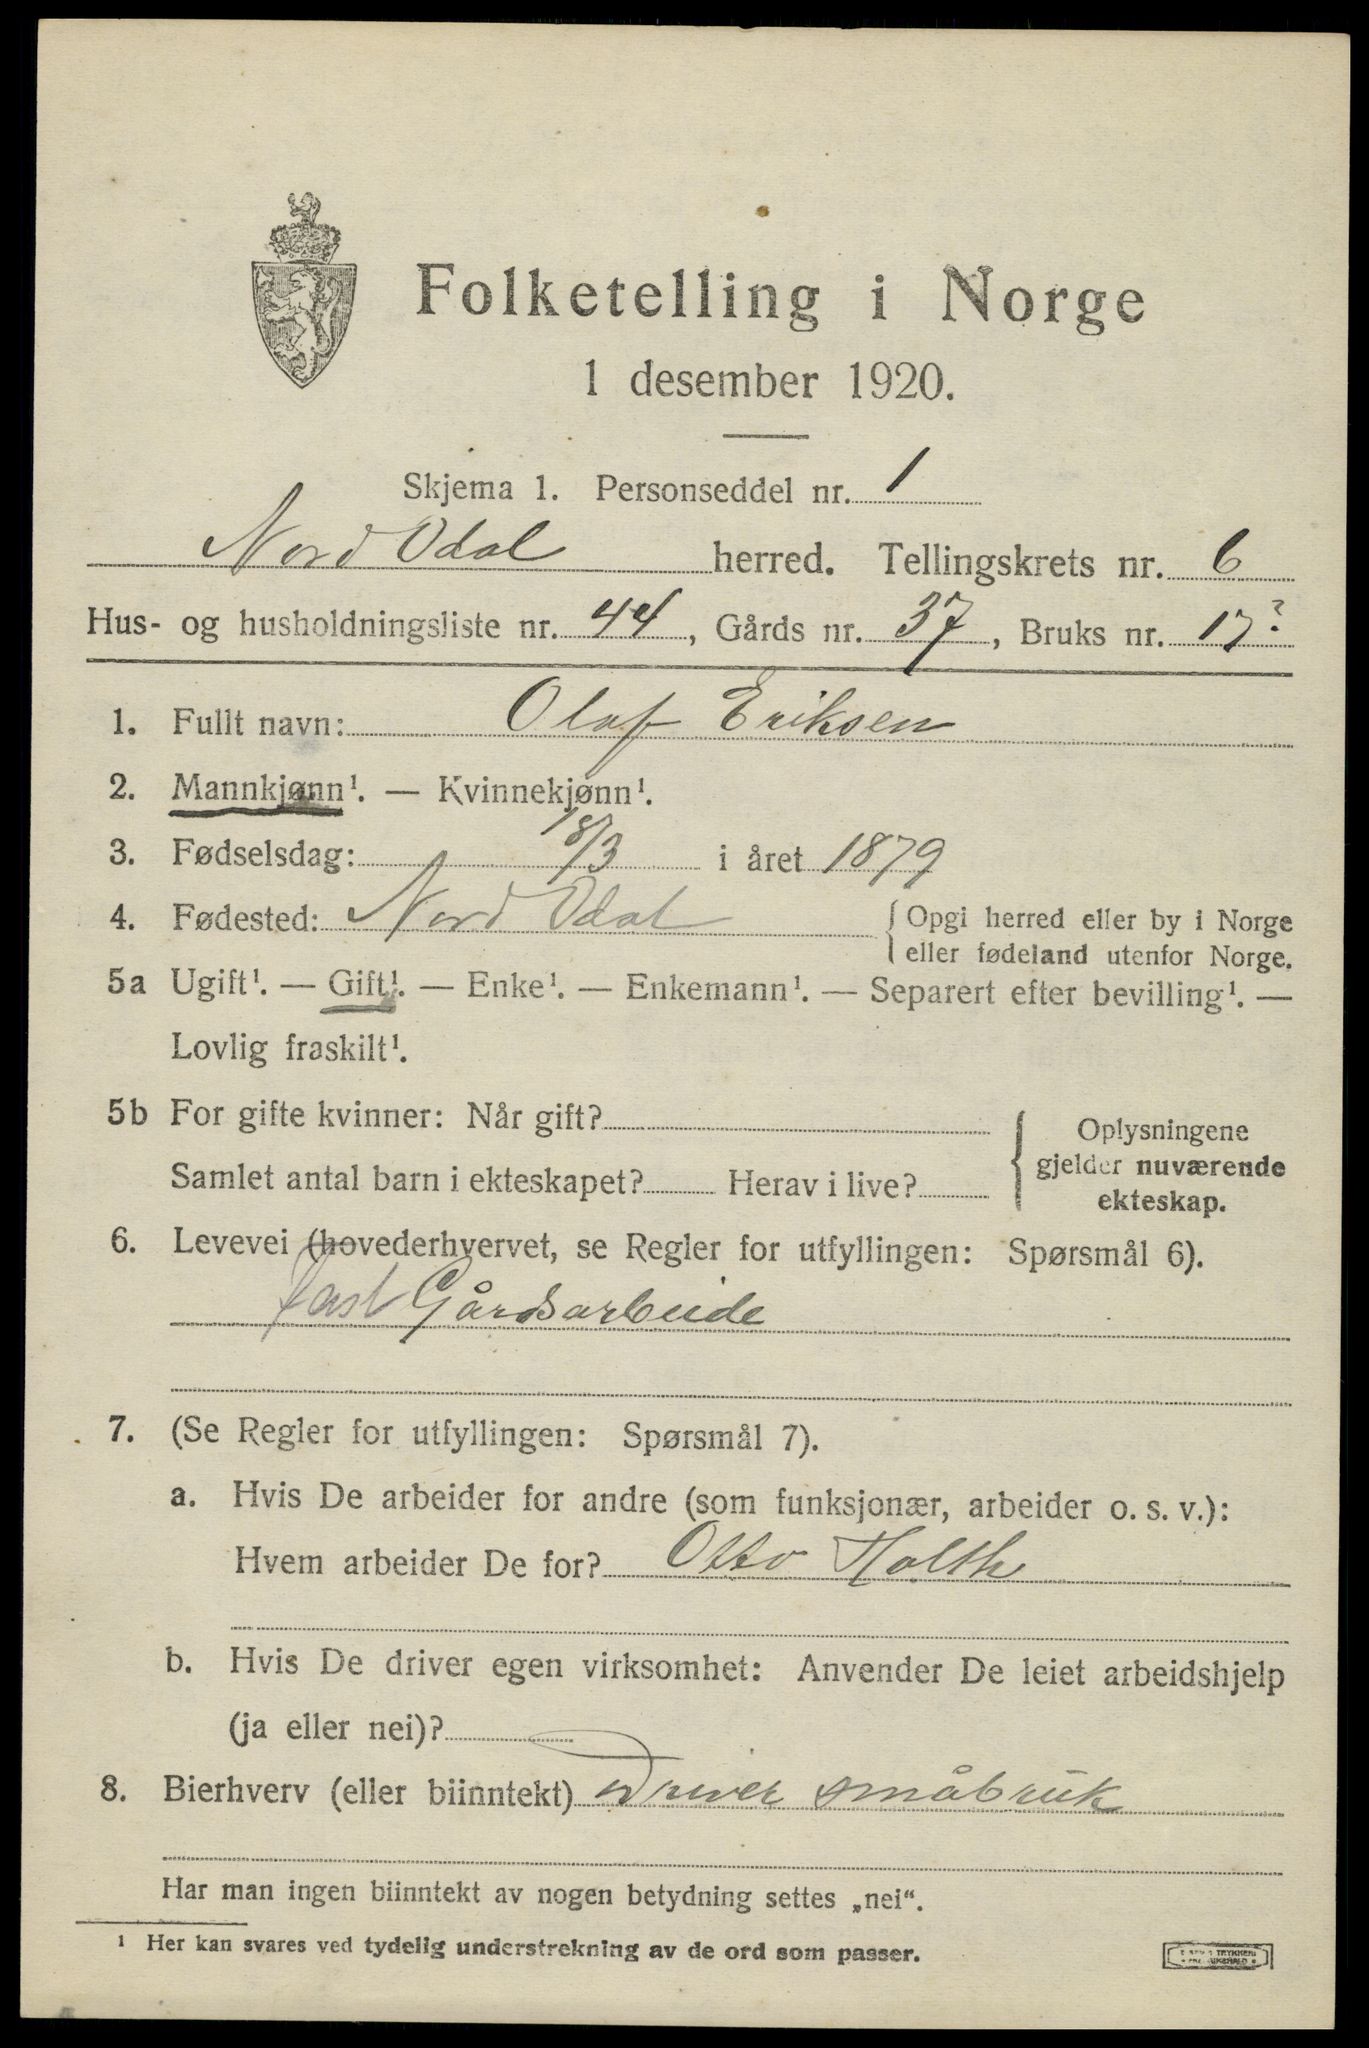 Folketelling i Norge
1 desember 1920.
Skjema 1. Personseddel nr. 1
Nord Odal herred. Tellingskrets nr. 6
Hus- og husholdningsliste nr. 44, Gårds nr. 37, Bruks nr. 17?
1. Fullt navn: Olaf Eriksen
2. Mannkjønn¹. — Kvinnekjønn¹.
3. Fødselsdag: 18/3 i året 1879
4. Fødested: Nord Odal { Opgi herred eller by i Norge
eller fødeland utenfor Norge.
5a Ugift¹. — Gift¹. — Enke¹. — Enkemann¹. — Separert efter bevilling¹. —
Lovlig fraskilt¹.
5b For gifte kvinner: Når gift?
Samlet antal barn i ekteskapet? Herav i live?
Oplysningene
gjelder nuværende
ekteskap.
6. Levevei (hovederhvervet, se Regler for utfyllingen: Spørsmål 6).
fast Gårdsarbeide
7. (Se Regler for utfyllingen: Spørsmål 7).
a. Hvis De arbeider for andre (som funksjonær, arbeider o. s. v.):
Hvem arbeider De for? Otto Holth
b. Hvis De driver egen virksomhet: Anvender De leiet arbeidshjelp
(ja eller nei)?
8. Bierhverv (eller biinntekt) Driver småbruk
Har man ingen biinntekt av nogen betydning settes „nei“.
¹ Her kan svares ved tydelig understrekning av de ord som passer.